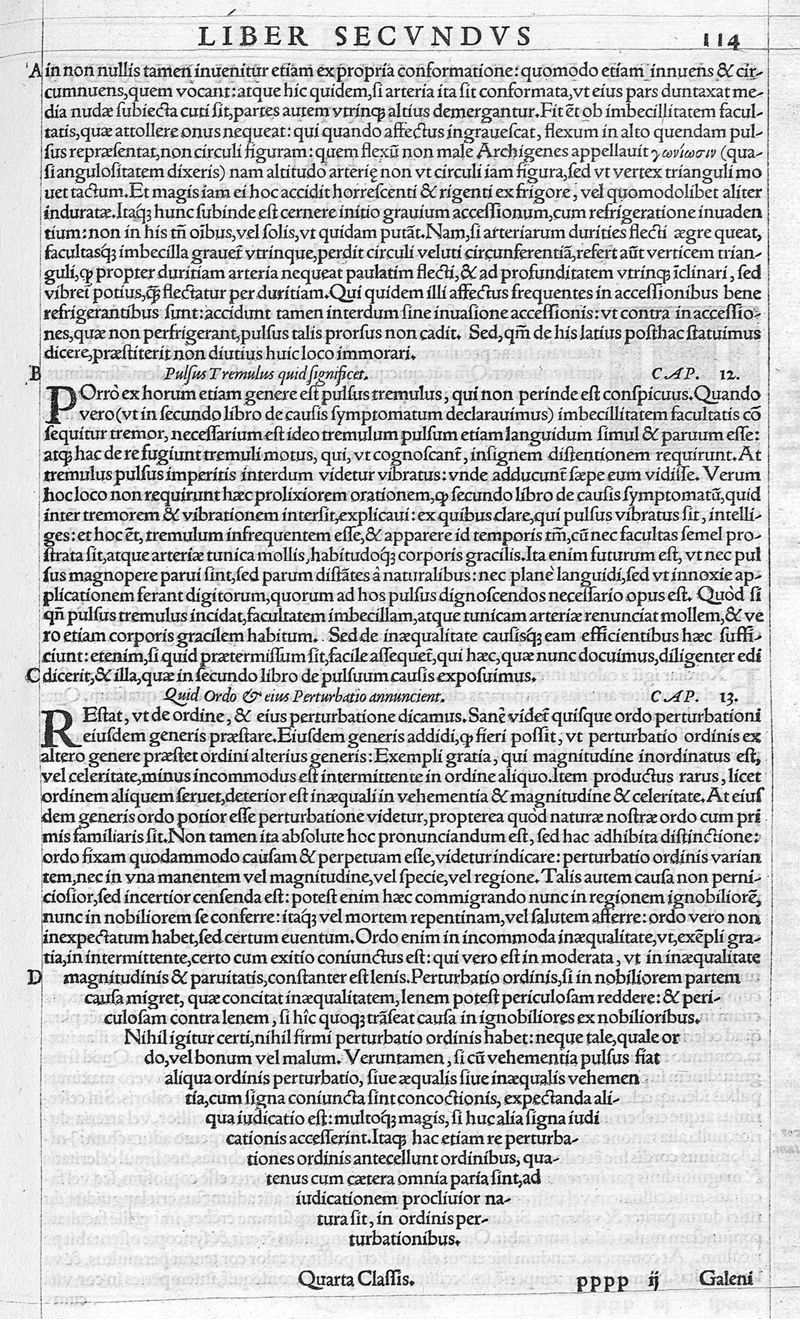 LIBER SECVNDVS 114
A in non nullis tamen inuenitur etiam ex propria conformatione: quomodo etiam innuens & cir-
cumnuens, quem vocant: atque hic quidem, si arteria ita sit conformata, vt eius pars duntaxat me-
dia nudæ subiecta cuti sit, partes autem vtrinq; altius demergantur. Fit ēt ob imbecillitatem facul-
tatis, quæ attollere onus nequeat: qui quando affectus ingrauescat, flexum in alto quendam pul-
sus repræsentat, non circuli figuram: quem flexū non male Archigenes appellauit γωνίωσιν (qua-
si angulositatem dixeris) nam altitudo arterię non vt circuli iam figura, sed vt vertex trianguli mo
uet tactum. Et magis iam ei hoc accidit horrescenti & rigenti ex frigore, vel quomodolibet aliter
induratæ. Itaq; hunc subinde est cernere initio grauium accessionum, cum refrigeratione inuaden
tium: non in his tñ oibus, vel solis, vt quidam putāt. Nam, si arteriarum durities flecti ægre queat,
facultasq; imbecilla grauet vtrinque, perdit circuli veluti circunferentiā, refert aūt verticem trian-
guli, φ propter duritiam arteria nequeat paulatim flecti, & ad profunditatem vtrinq; īclinari, sed
vibrei potius, q̄; flectatur per duritiam. Qui quidem illi affectus frequentes in accessionibus bene
refrigerantibus sunt: accidunt tamen interdum sine inuasione accessionis: vt contra in accessio-
nes, quæ non perfrigerant, pulsus talis prorsus non cadit. Sed, qm̄ de his latius posthac statuimus
dicere, præstiterit non diutius huic loco immorari.
B Pulsus Tremulus quid significet. CAP. 12.
POrrò ex horum etiam genere est pulsus tremulus, qui non perinde est conspicuus. Quando
vero (vt in secundo libro de causis symptomatum declarauimus) imbecillitatem facultatis cō
sequitur tremor, necessarium est ideo tremulum pulsum etiam languidum simul & paruum esse:
atq; hac de re fugiunt tremuli motus, qui, vt cognoscant̄, insignem distentionem requirunt. At
tremulus pulsus imperitis interdum videtur vibratus: vnde adducunt̄ sæpe eum vidisse. Verum
hoc loco non requirunt hæc prolixiorem orationem, φ secundo libro de causis symptomatū, quid
inter tremorem & vibrationem intersit, explicaui: ex quibus clare, qui pulsus vibratus sit, intelli-
ges: et hoc ēt, tremulum infrequentem esse, & apparere id temporis tm̄, cū nec facultas semel pro-
strata sit, atque arteriæ tunica mollis, habitudoq; corporis gracilis. Ita enim futurum est, vt nec pul
sus magnopere parui sint, sed parum distātes à naturalibus: nec planè languidi, sed vt innoxie ap-
plicationem ferant digitorum, quorum ad hos pulsus dignoscendos necessario opus est. Quòd si
qñ pulsus tremulus incidat, facultatem imbecillam, atque tunicam arteriæ renunciat mollem, & ve
ro etiam corporis gracilem habitum. Sed de inæqualitate causisq; eam efficientibus hæc suffi-
ciunt: etenim, si quid prætermissum sit, facile assequet̄, qui hæc, quæ nunc docuimus, diligenter edi
C dicerit, & illa, quæ in secundo libro de pulsuum causis exposuimus.
Quid Ordo & eius Perturbatio annuncient. CAP. 13.
REstat, vt de ordine, & eius perturbatione dicamus. Sanè videt̄ quisque ordo perturbationi
eiusdem generis præstare. Eiusdem generis addidi, φ fieri possit, vt perturbatio ordinis ex
altero genere præstet ordini alterius generis: Exempli gratia, qui magnitudine inordinatus est,
vel celeritate, minus incommodus est intermittente in ordine aliquo. Item productus rarus, licet
ordinem aliquem seruet, deterior est inæquali in vehementia & magnitudine & celeritate. At eius
dem generis ordo potior esse perturbatione videtur, propterea quòd naturæ nostræ ordo cum pri
mis familiaris sit. Non tamen ita absolute hoc pronunciandum est, sed hac adhibita distinctione:
ordo fixam quodammodo causam & perpetuam esse, videtur indicare: perturbatio ordinis varian
tem, nec in vna manentem vel magnitudine, vel specie, vel regione. Talis autem causa non perni-
ciosior, sed incertior censenda est: potest enim hæc commigrando nunc in regionem ignobiliorē,
nunc in nobiliorem se conferre: itaq; vel mortem repentinam, vel salutem afferre: ordo vero non
inexpectatum habet, sed certum euentum. Ordo enim in incommoda inæqualitate, vt, exēpli gra-
tia, in intermittente, certo cum exitio coniunctus est: qui vero est in moderata, vt in inæqualitate
D magnitudinis & paruitatis, constanter est lenis. Perturbatio ordinis, si in nobiliorem partem
causa migret, quæ concitat inæqualitatem, lenem potest periculosam reddere: & peri-
culosam contra lenem, si hîc quoq; trāseat causa in ignobiliores ex nobilioribus.
Nihil igitur certi, nihil firmi perturbatio ordinis habet: neque tale, quale or
do, vel bonum vel malum. Veruntamen, si cū vehementia pulsus fiat
aliqua ordinis perturbatio, siue æqualis siue inæqualis vehemen
tia, cum signa coniuncta sint concoctionis, expectanda ali-
qua iudicatio est: multoq; magis, si huc alia signa iudi
cationis accesserint. Itaq; hac etiam re perturba-
tiones ordinis antecellunt ordinibus, qua-
tenus cum cætera omnia paria sint, ad
iudicationem procliuior na-
tura sit, in ordinis per-
turbationibus.
Quarta Classis. pppp ij Galeni